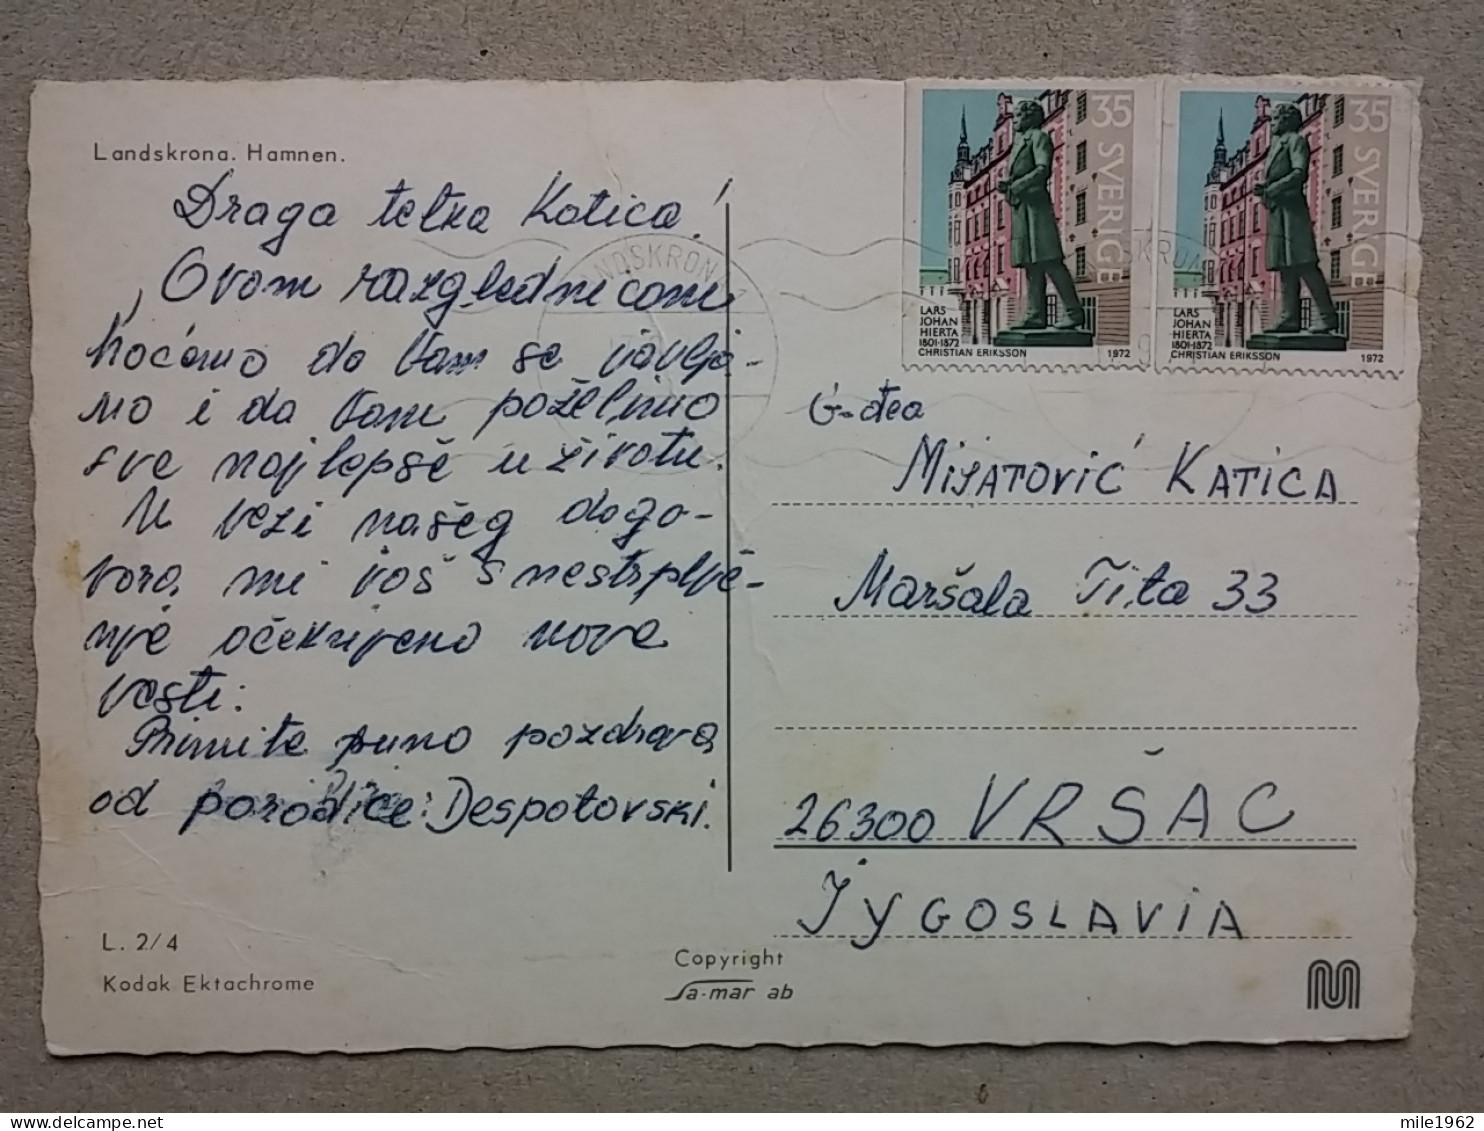 Landskrona. Hamnen.
Draga tetka Katica!
Ovom razglednicom
hoćemo da Vam se javlja-
mo i da Vam poželimo
sve najlepše u životu.
U vezi našeg dogo-
vora, mi još s nestrplje-
nje očekujemo nove
vesti.
Primite puno pozdrava
od porodice: Despotovski.
L. 2/4
Kodak Ektachrome
Copyright
Sa-mar ab
35
SVERIGE
LARS
JOHAN
HIERTA
1801-1872
CHRISTIAN ERIKSSON 1972
35
SVERIGE
LARS
JOHAN
HIERTA
1801-1872
CHRISTIAN ERIKSSON 1972
LANDSKRONA
G-đea
MIJATOVIĆ KATICA
Maršala Tita 33
26300 VRŠAC
JYGOSLAVIA
mile1962